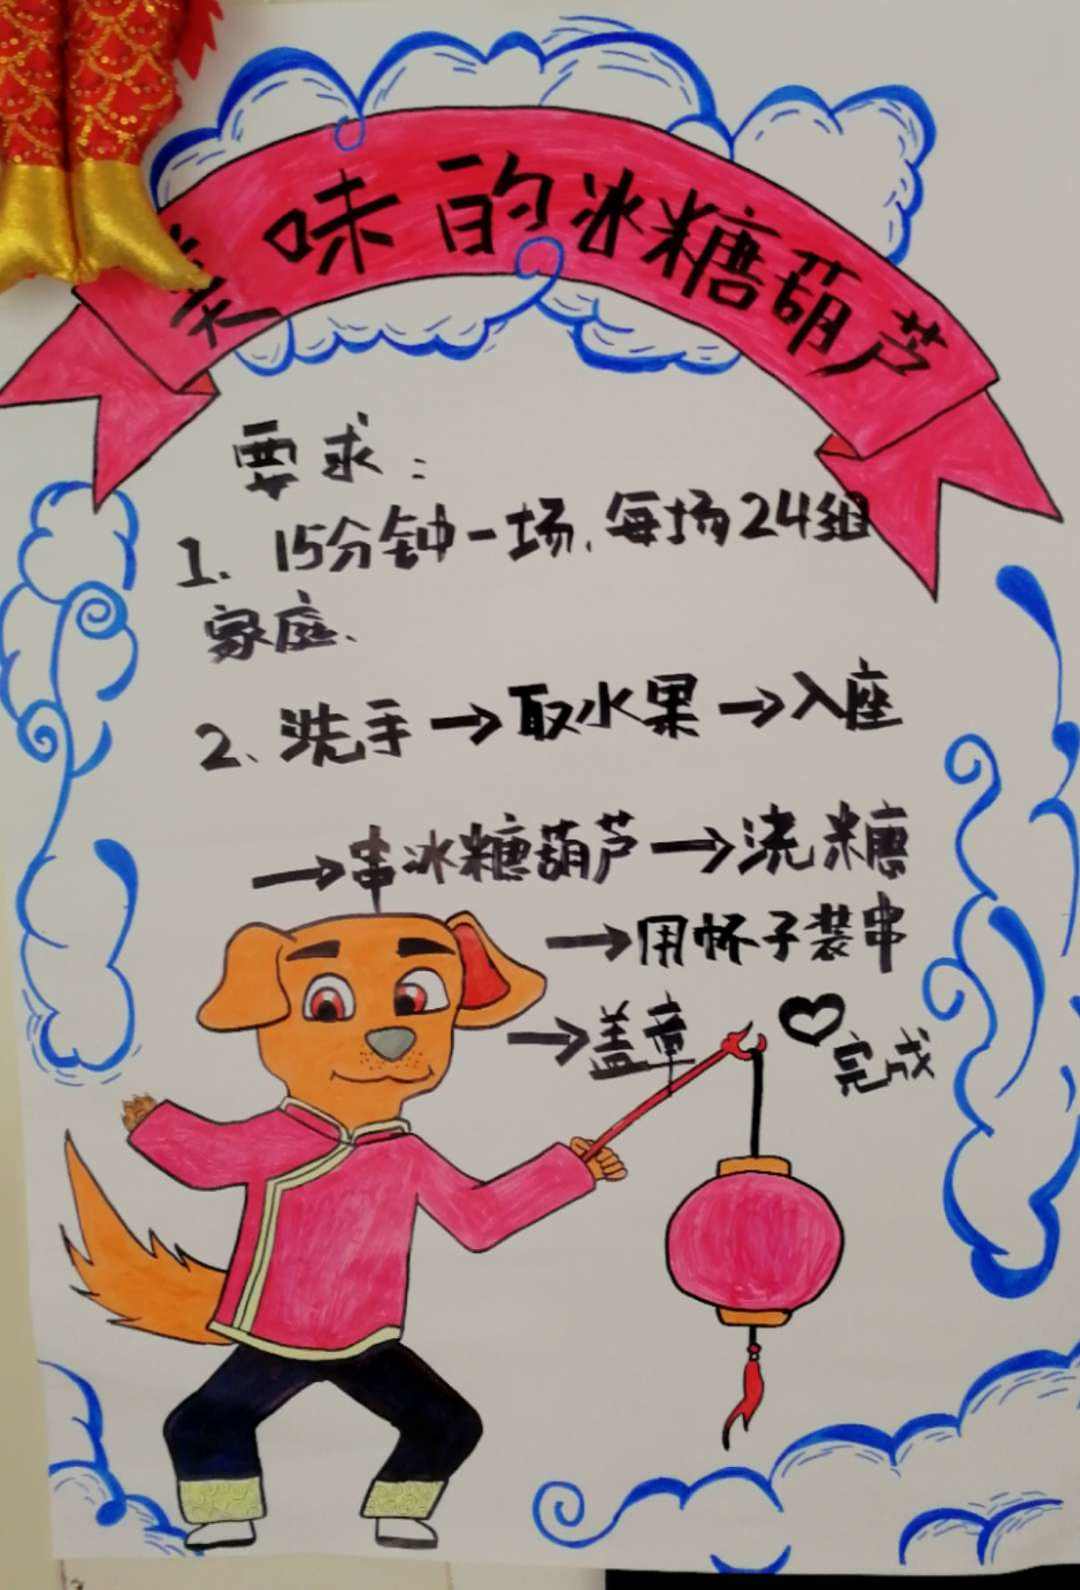 美味的冰糖葫芦
要求：
1、15分钟一场，每场24组
家庭、
2、洗手→取水果→入座
→串冰糖葫芦→浇糖
→用杯子装串
→盖章♡完成